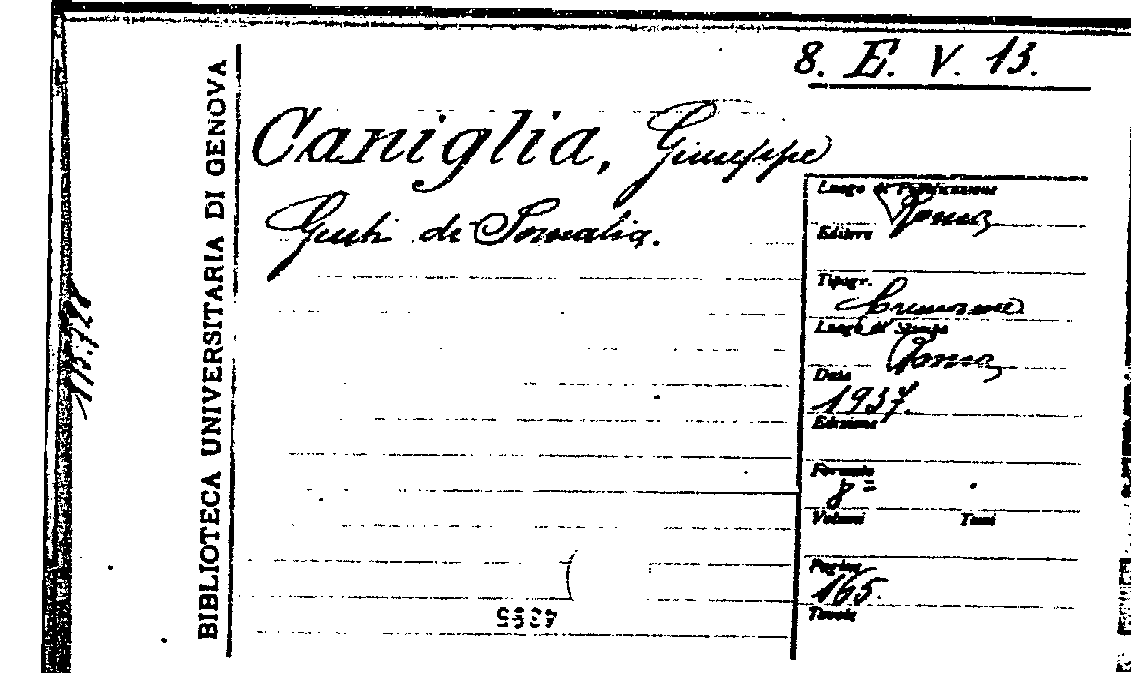 8. E. V. 13.
BIBLIOTECA UNIVERSITARIA DI GENOVA
Caniglia, Giuseppe
Genti di Somalia.
Luogo di Pubblicazione
Roma
Editore
Tipogr.
Cremonese
Luogo di Stampa
Roma
Data
1937.
Edizione
Formato
8º
Volumi Tomi
Pagine
165.
Tavole